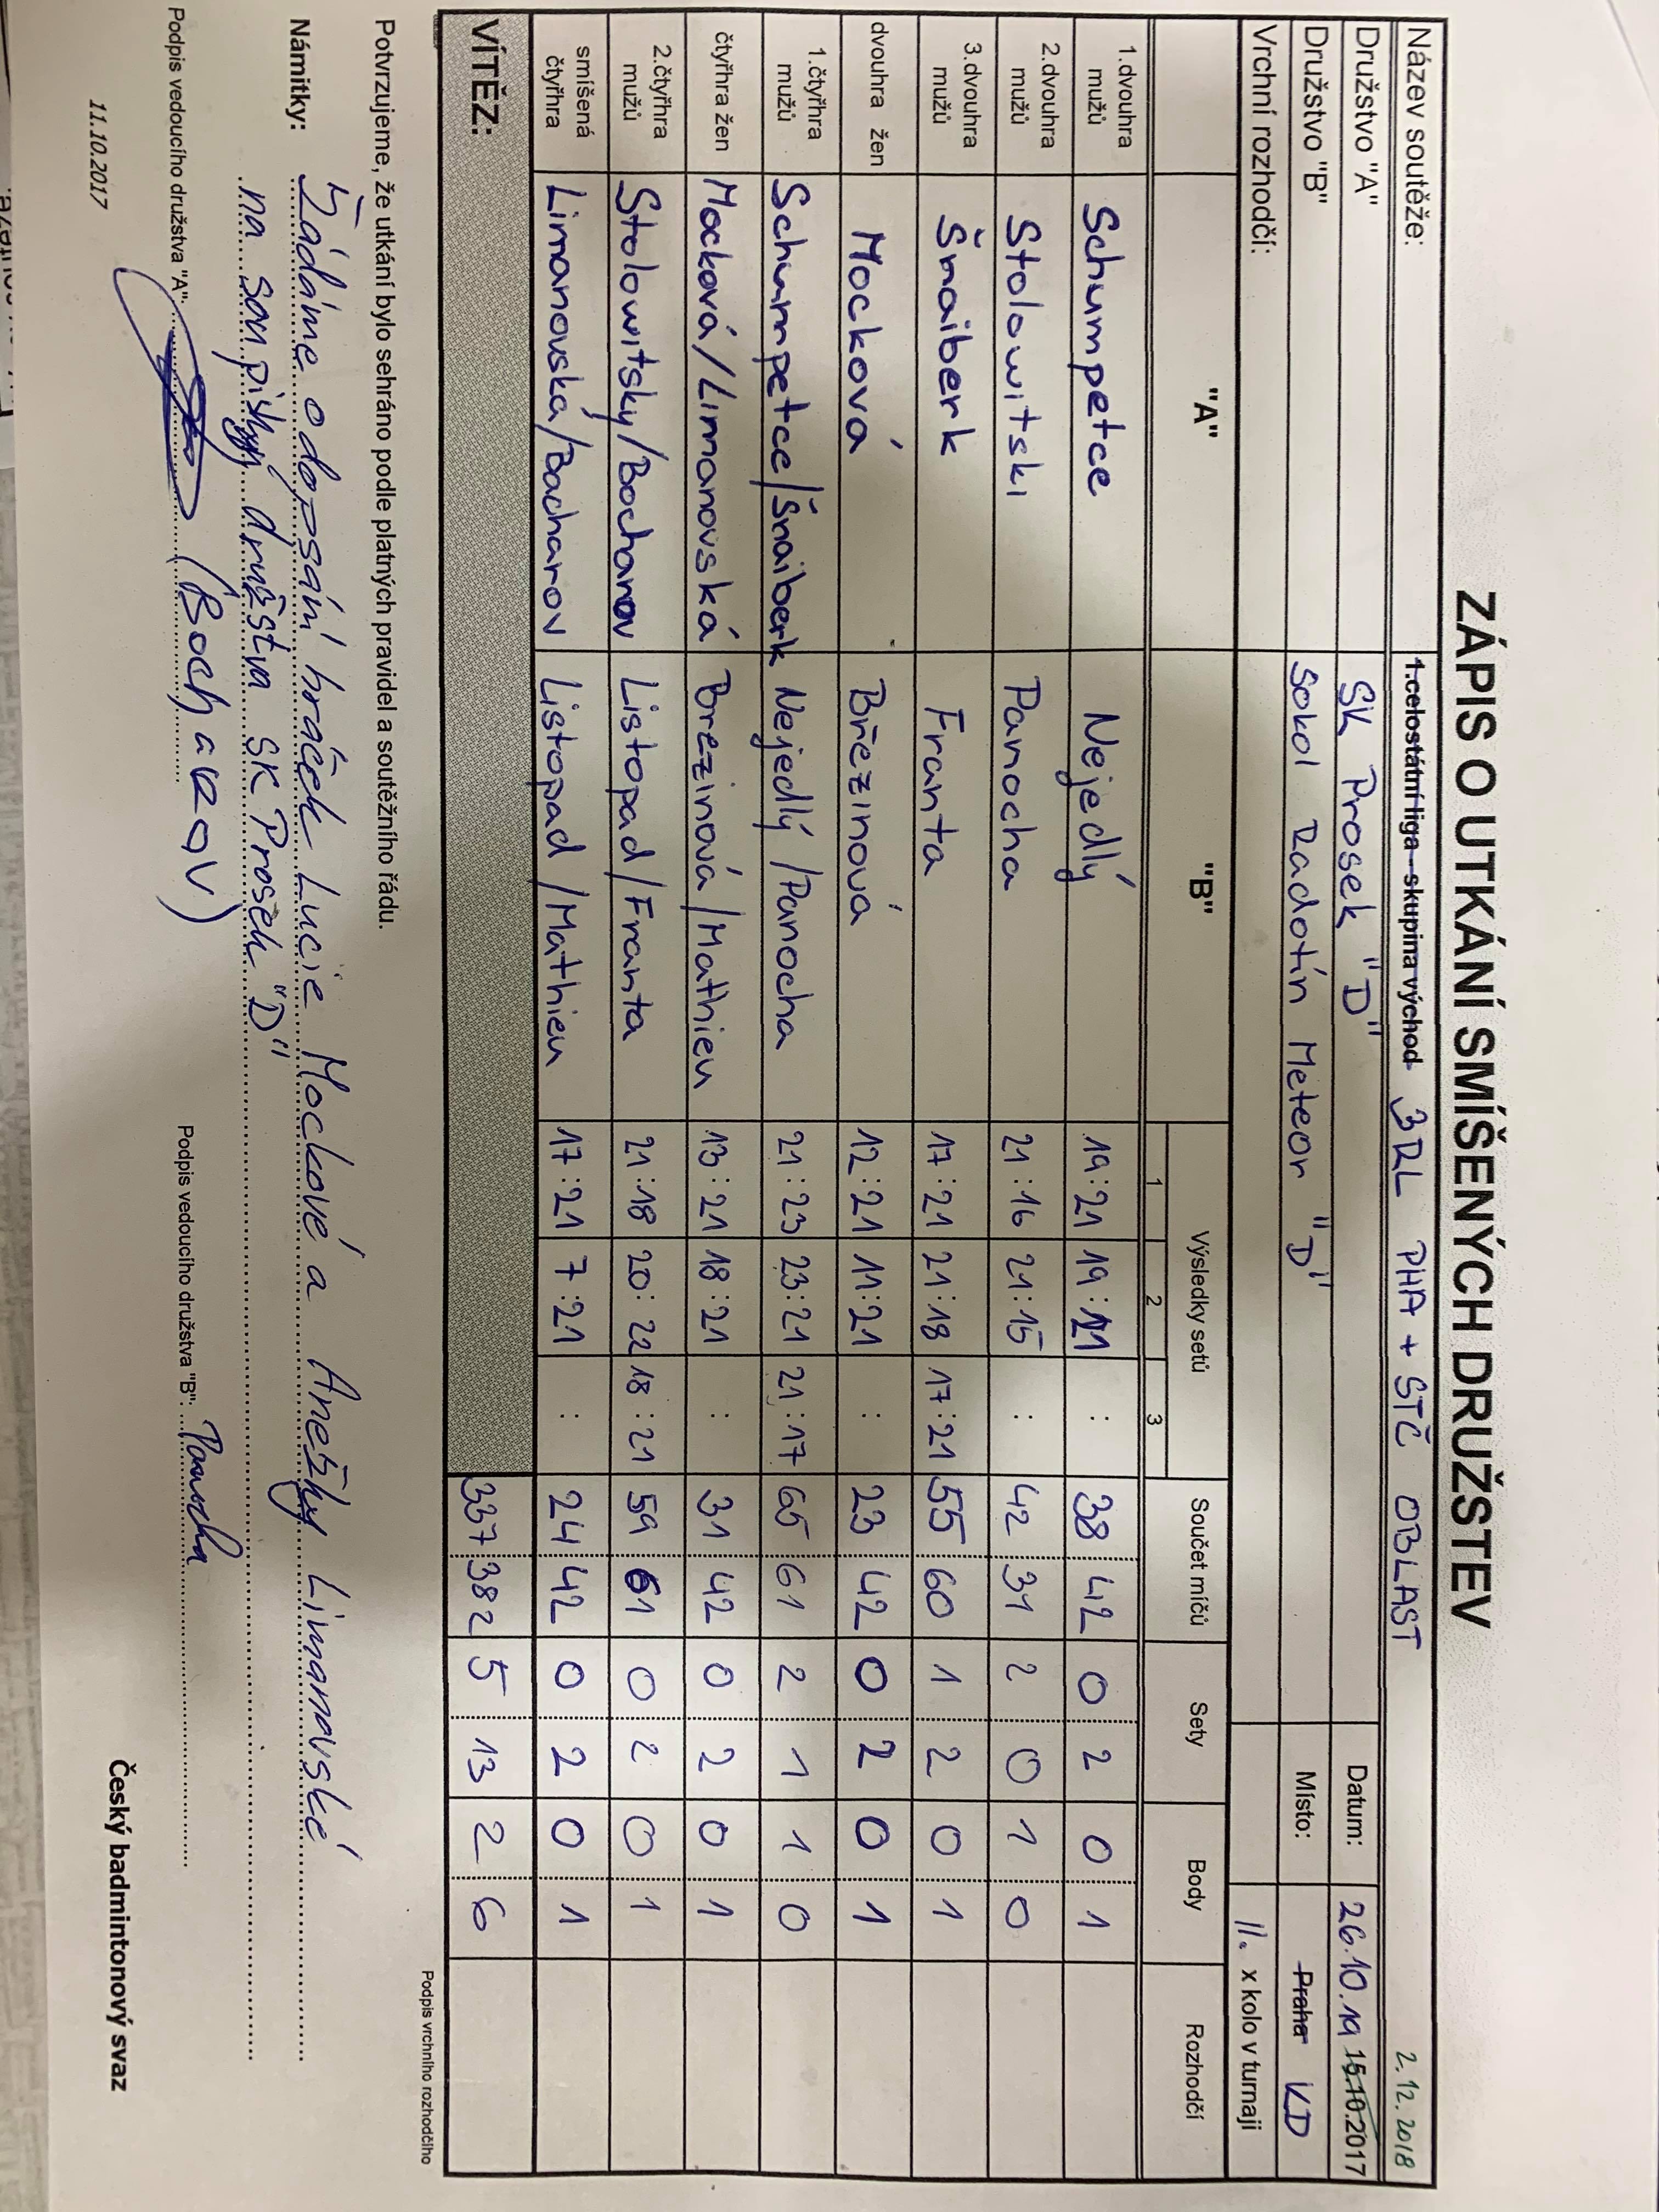 ZÁPIS O UTKÁNÍ SMÍŠENÝCH DRUŽSTEV
2.12.2018
Název soutěže: 1.celostátní liga - skupina východ 3RL PHA + STČ OBLAST
Družstvo "A" SK Prosek "D" Datum: 26.10.19 15.10.2017
Družstvo "B" Sokol Radotín Meteor "D" Místo: Praha KD
Vrchní rozhodčí: II. x kolo v turnaji
"A" "B" Výsledky setů Součet míčů Sety Body Rozhodčí
1 2 3
1.dvouhra mužů Schumpetce Nejedlý 19:21 19:21 : 38 42 0 2 0 1
2.dvouhra mužů Stolowitski Panocha 21:16 21:15 : 42 31 2 0 1 0
3.dvouhra mužů Šnaiberk Franta 17:21 21:18 17:21 55 60 1 2 0 1
dvouhra žen Mocková Březinová 12:21 11:21 : 23 42 0 2 0 1
1.čtyřhra mužů Schumpetce/Šnaiberk Nejedlý/Panocha 21:23 23:21 21:17 65 61 2 1 1 0
čtyřhra žen Mocková/Limanovská Brezinová/Mathieu 13:21 18:21 : 31 42 0 2 0 1
2.čtyřhra mužů Stolowitsky/Bocharov Listopad/Franta 21:18 20:22 18:21 59 61 0 2 0 1
smíšená čtyřhra Limanovská/Bacharov Listopad/Mathieu 17:21 7:21 : 24 42 0 2 0 1
VÍTĚZ: 337 382 5 13 2 6
Podpis vrchního rozhodčího
Potvrzujeme, že utkání bylo sehráno podle platných pravidel a soutěžního řádu.
Námitky: Žádáme o dopsání hráček Lucie Mockové a Anežky Limanovské
na soupisky družstva SK Prosek "D"
Podpis vedoucího družstva "A": (Bocharov) Podpis vedoucího družstva "B": Panocha
11.10.2017 Český badmintonový svaz